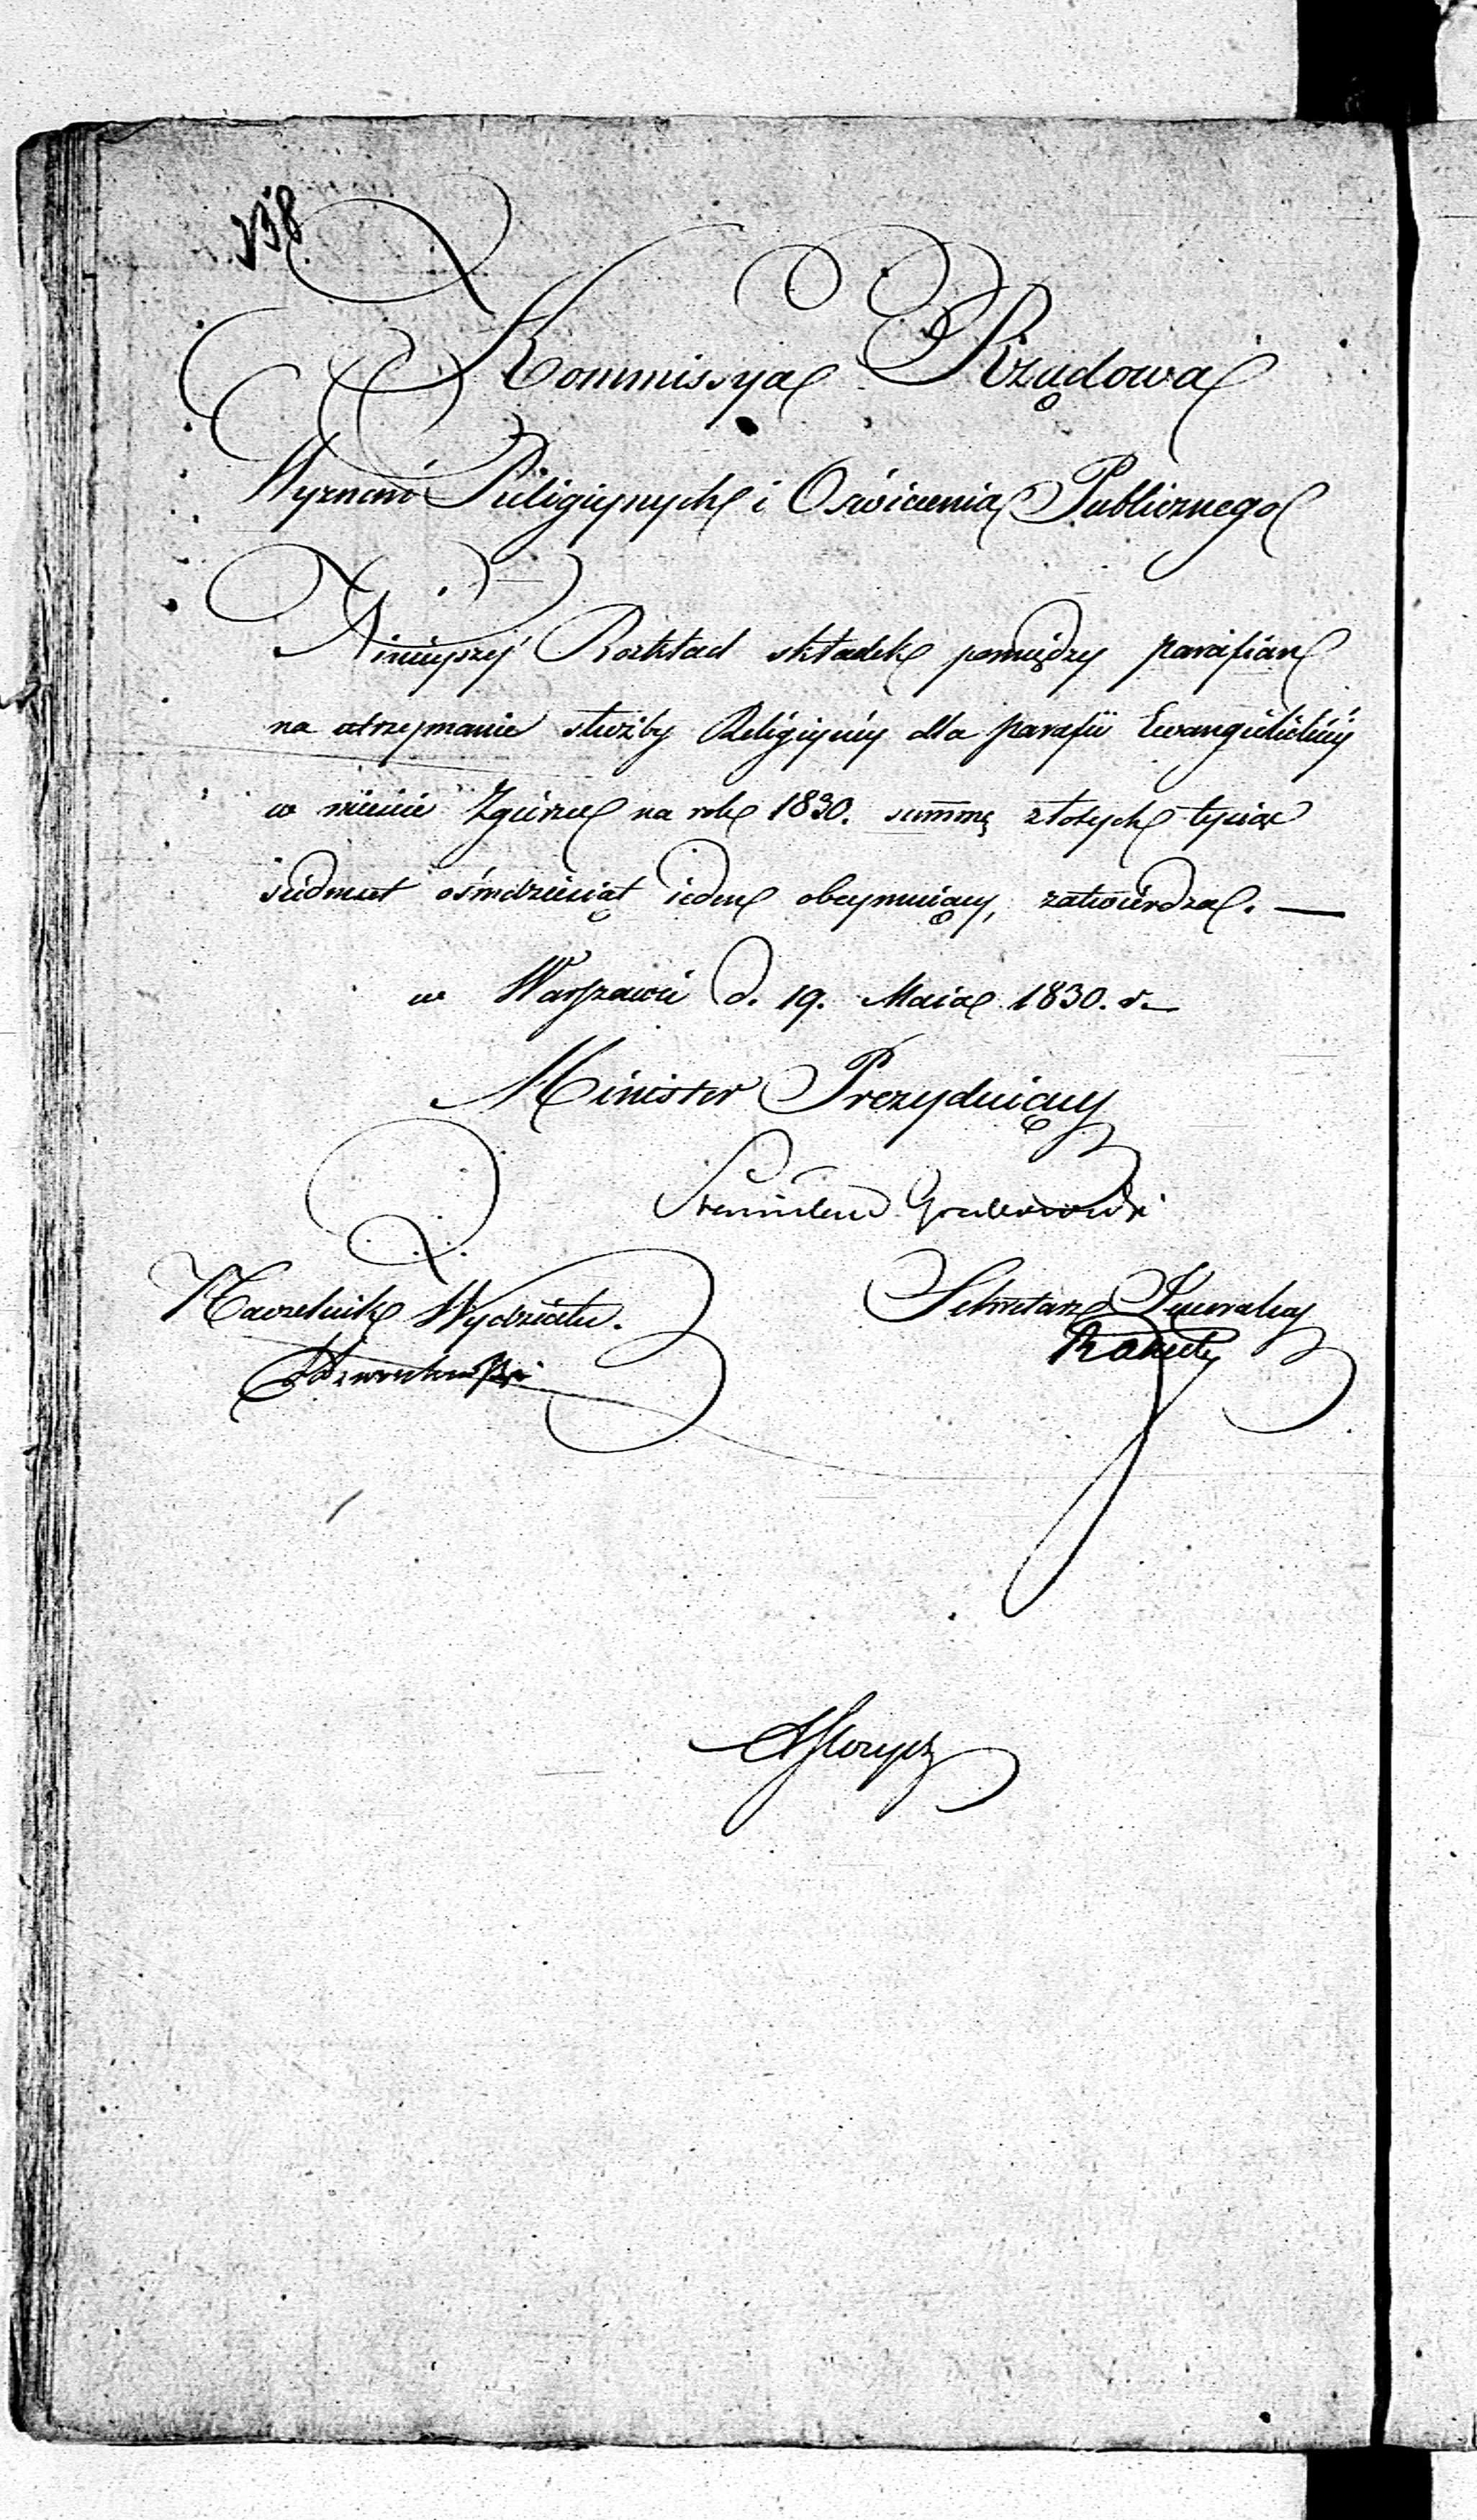 238
Kommissya Rządowa
Wyznań Religiynych i Oświecenia Publicznego
Ninieyszy Rozkład składek pomiędzy parafian
na utrzymanie służby Religiyney dla parafii Ewangelickiey
w mieście Zgierzu na rok 1830. summę złotych tysiąc
siedmset ośmdziesiąt ieden obeymuiący, zatwierdza. —
w Warszawie d. 19. Maia 1830. r.
Minister Prezyduiący
Stanisław Grabowski
Naczelnik Wydziału.
Sekretarz Jeneralny